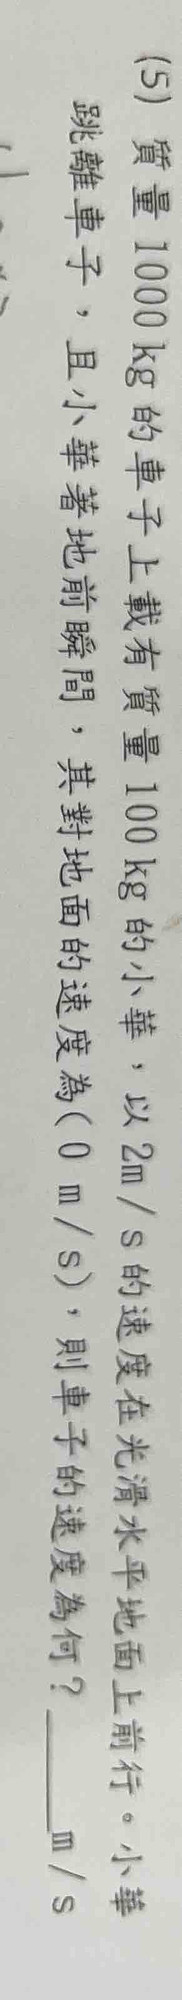 (5) 質量 1000 kg 的車子上載有質量 100 kg 的小華，以 2m/s 的速度在光滑水平地面上前行。小華
跳離車子，且小華著地前瞬間，其對地面的速度為(0 m/s)，則車子的速度為何？______m/s